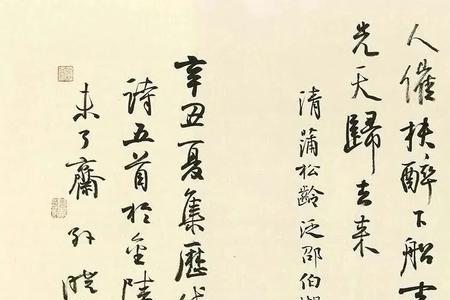 人催扶醉下船
先天歸去来
清蒲松齡泛邵伯湖
辛丑夏集歷代
诗五首於金陵
未了齋孙晓